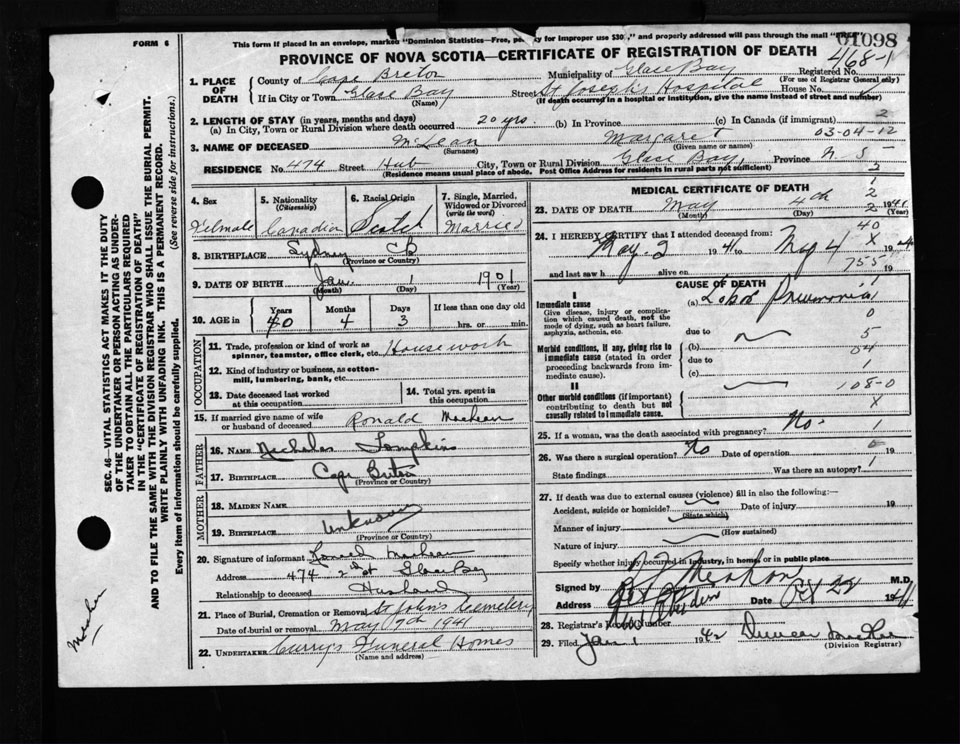 FORM 6
This form if placed in an envelope, marked "Dominion Statistics—Free, penalty for improper use $30," and properly addressed will pass through the mail "FREE"
01098
PROVINCE OF NOVA SCOTIA—CERTIFICATE OF REGISTRATION OF DEATH
468-1
1. PLACE OF DEATH
County of Cape Breton
Municipality of Glace Bay
Registered No.
(For use of Registrar General only)
If in City or Town Glace Bay
(Name)
Street St Joseph's Hospital House No.
(If death occurred in a hospital or institution, give the name instead of street and number)
2. LENGTH OF STAY (in years, months and days)
(a) In City, Town or Rural Division where death occurred 20 yrs. (b) In Province (c) In Canada (if immigrant) 2
03-04-12
3. NAME OF DECEASED McLean Margaret
(Surname) (Given name or names)
RESIDENCE No. 474 Street Hub City, Town or Rural Division Glace Bay, Province N. S
(Residence means usual place of abode. Post Office Address for residents in rural parts not sufficient)
4. Sex
Female
5. Nationality
(Citizenship)
Canadian
6. Racial Origin
Scotch
7. Single, Married, Widowed or Divorced
(write the word)
Married
8. BIRTHPLACE Sydney CB
(Province or Country)
9. DATE OF BIRTH Jan 1 1901
(Month) (Day) (Year)
10. AGE in
Years Months Days If less than one day old
40 4 3 hrs. or min.
OCCUPATION
11. Trade, profession or kind of work as spinner, teamster, office clerk, etc. Housework
12. Kind of industry or business, as cotton-mill, lumbering, bank, etc.
13. Date deceased last worked at this occupation
14. Total yrs. spent in this occupation
15. If married give name of wife or husband of deceased Ronald MacLean
FATHER
16. NAME Nicholas Tompkins
17. BIRTHPLACE Cape Breton
(Province or Country)
MOTHER
18. MAIDEN NAME
19. BIRTHPLACE Unknown
(Province or Country)
20. Signature of informant MacLean
Address 474 2nd St Glace Bay
Relationship to deceased Husband
21. Place of Burial, Cremation or Removal St John's Cemetery
Date of burial or removal May 7th 1941
22. UNDERTAKER Curry's Funeral Homes
(Name and address)
MEDICAL CERTIFICATE OF DEATH
23. DATE OF DEATH May 4th 1941
(Month) (Day) (Year)
24. I HEREBY CERTIFY that I attended deceased from:
May 2 1941 to May 4 19
and last saw h alive on 19
755
CAUSE OF DEATH
I
Immediate cause
Give disease, injury or complication which caused death, not the mode of dying, such as heart failure, asphyxia, asthenia, etc.
(a) Lobar Pneumonia
due to
Morbid conditions, if any, giving rise to immediate cause (stated in order proceeding backwards from immediate cause).
(b)
due to
(c)
II
Other morbid conditions (if important) contributing to death but not causally related to immediate cause.
108-0
25. If a woman, was the death associated with pregnancy? No.
26. Was there a surgical operation? No Date of operation 19
State findings Was there an autopsy?
27. If death was due to external causes (violence) fill in also the following:—
Accident, suicide or homicide? Date of injury 19
(State which)
Manner of injury
(How sustained)
Nature of injury
Specify whether injury occurred in industry, in home, or in public place
Signed by M.D.
Address Date Oct 22 1941
28. Registrar's Record Number
29. Filed Jan 1 1942 Duncan
(Division Registrar)
SEC. 46—VITAL STATISTICS ACT MAKES IT THE DUTY
OF THE UNDERTAKER OR PERSON ACTING AS UNDER-
TAKER TO OBTAIN ALL THE PARTICULARS REQUIRED
IN THE "CERTIFICATE OF REGISTRATION OF DEATH"
AND TO FILE THE SAME WITH THE DIVISION REGISTRAR WHO SHALL ISSUE THE BURIAL PERMIT.
WRITE PLAINLY WITH UNFADING INK. THIS IS A PERMANENT RECORD.
Every item of information should be carefully supplied. (See reverse side for instructions.)